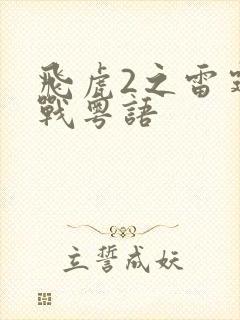 飛虎2之雷
戰粵語
立誓成妖